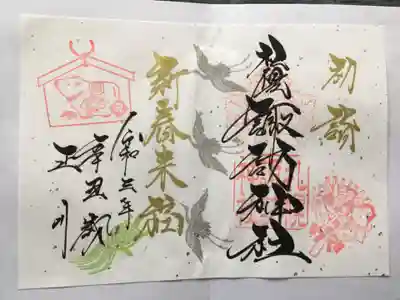 初詣
諏訪神社
新春来福
令和三年
辛丑歳
正月